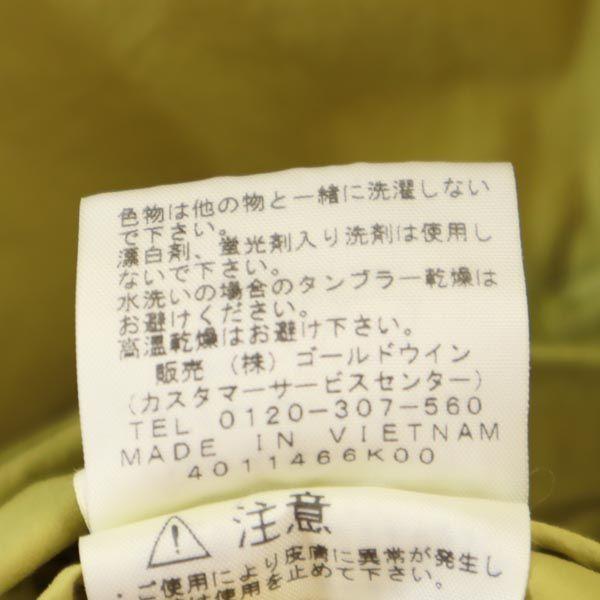 色物は他の物と一緒に洗濯しない
で下さい。
漂白剤、蛍光剤入り洗剤は使用し
ないで下さい。
水洗いの場合のタンブラー乾燥は
お避けください。
高温乾燥はお避け下さい。
販売 (株) ゴールドウイン
(カスタマーサービスセンター)
TEL 0120-307-560
MADE IN VIETNAM
4011466K00
注意
・ご使用により皮膚に異常が発生し
は使用を止めて下さい